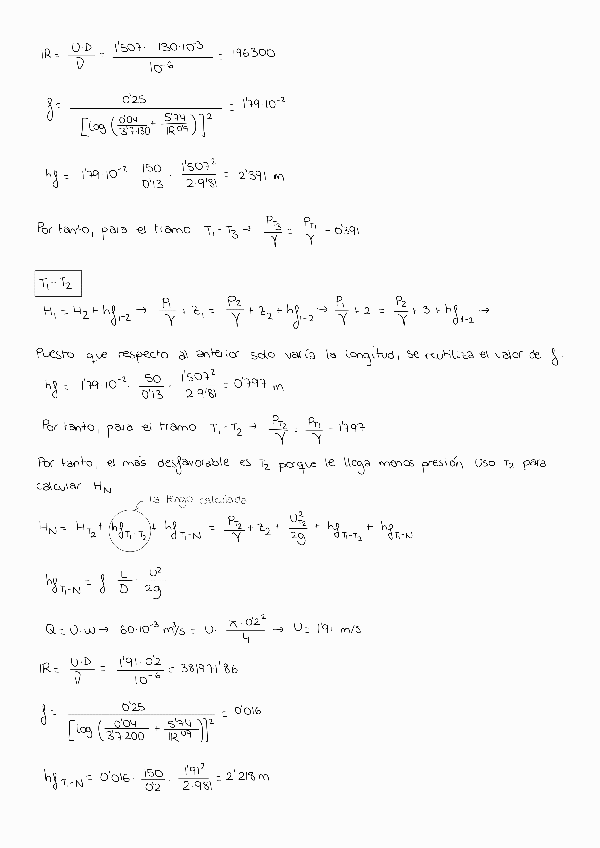 IR = U·D / D = 1'507 · 130·10^-3 / 10^-6 = 196300
f = 0'25 / [log (0'04 / 3'7·130 + 5'74 / IR^0'9)]^2 = 1'79·10^-2
hf = 1'79·10^-2 · 150 / 0'13 · 1'507^2 / 2·9'81 = 2'391 m
Por tanto, para el tramo T1-T3 → P_T3 / γ = P_T1 / γ - 0'391
T1-T2
H1 = H2 + hf_1-2 → P1 / γ + z1 = P2 / γ + z2 + hf_1-2 → P1 / γ + 2 = P2 / γ + 3 + hf_1-2 →
Puesto que respecto al anterior solo varía la longitud, se reutiliza el valor de f.
hf = 1'79·10^-2 · 50 / 0'13 · 1'507^2 / 2·9'81 = 0'797 m
Por tanto, para el tramo T1-T2 → P_T2 / γ = P_T1 / γ - 1'797
Por tanto, el más desfavorable es T2 porque le llega menos presión. Uso T2 para
calcular H_N
la tengo calculada
H_N = H_T2 + hf_T1-T2 + hf_T1-N = P_T2 / γ + z2 + U_T2^2 / 2g + hf_T1-T2 + hf_T1-N
hf_T1-N = f · L / D · U^2 / 2g
Q = U·w → 60·10^-3 m³/s = U · π·0'2^2 / 4 → U = 1'91 m/s
IR = U·D / ν = 1'91·0'2 / 10^-6 = 381971'86
f = 0'25 / [log (0'04 / 3'7·200 + 5'74 / IR^0'9)]^2 = 0'016
hf_T1-N = 0'016 · 150 / 0'2 · 1'91^2 / 2·9'81 = 2'218 m